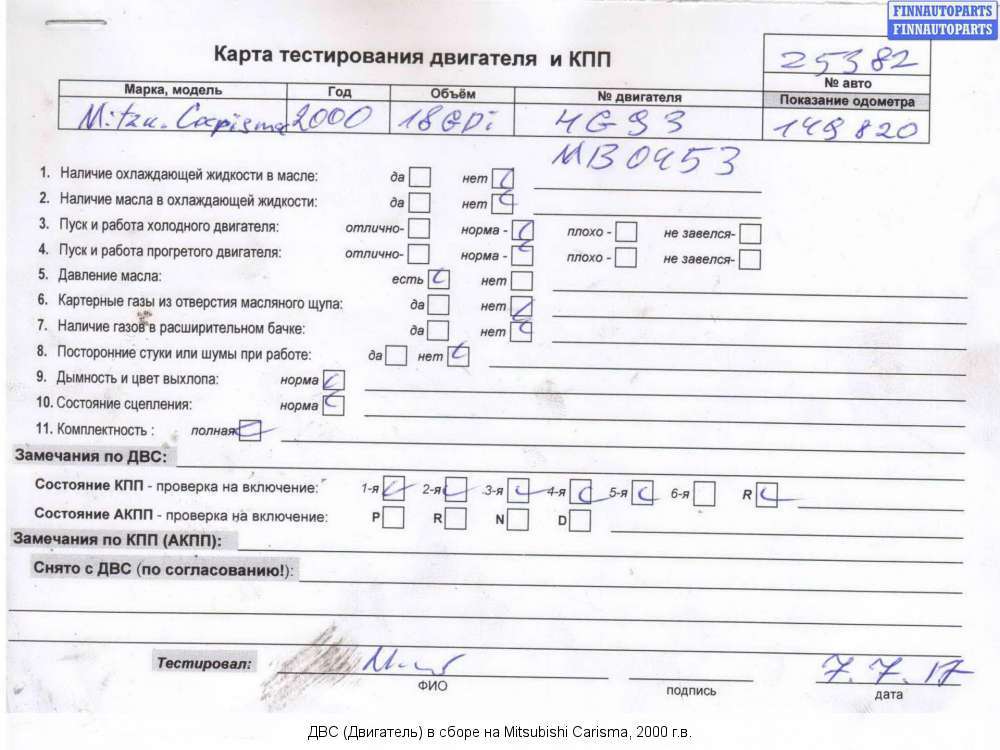 FINNAUTOPARTS
FINNAUTOPARTS
Карта тестирования двигателя и КПП
25382
№ авто
Марка, модель Год Объём № двигателя Показание одометра
Mitzu. Carisma 2000 18 GDi 4G93 149820
MB0453
1. Наличие охлаждающей жидкости в масле: да нет
2. Наличие масла в охлаждающей жидкости: да нет
3. Пуск и работа холодного двигателя: отлично- норма - плохо - не завелся-
4. Пуск и работа прогретого двигателя: отлично- норма - плохо - не завелся-
5. Давление масла: есть нет
6. Картерные газы из отверстия масляного щупа: да нет
7. Наличие газов в расширительном бачке: да нет
8. Посторонние стуки или шумы при работе: да нет
9. Дымность и цвет выхлопа: норма
10. Состояние сцепления: норма
11. Комплектность : полная
Замечания по ДВС:
Состояние КПП - проверка на включение: 1-я 2-я 3-я 4-я 5-я 6-я R
Состояние АКПП - проверка на включение: P R N D
Замечания по КПП (АКПП):
Снято с ДВС (по согласованию!):
Тестировал: 7.7.17
ФИО подпись дата
ДВС (Двигатель) в сборе на Mitsubishi Carisma, 2000 г.в.